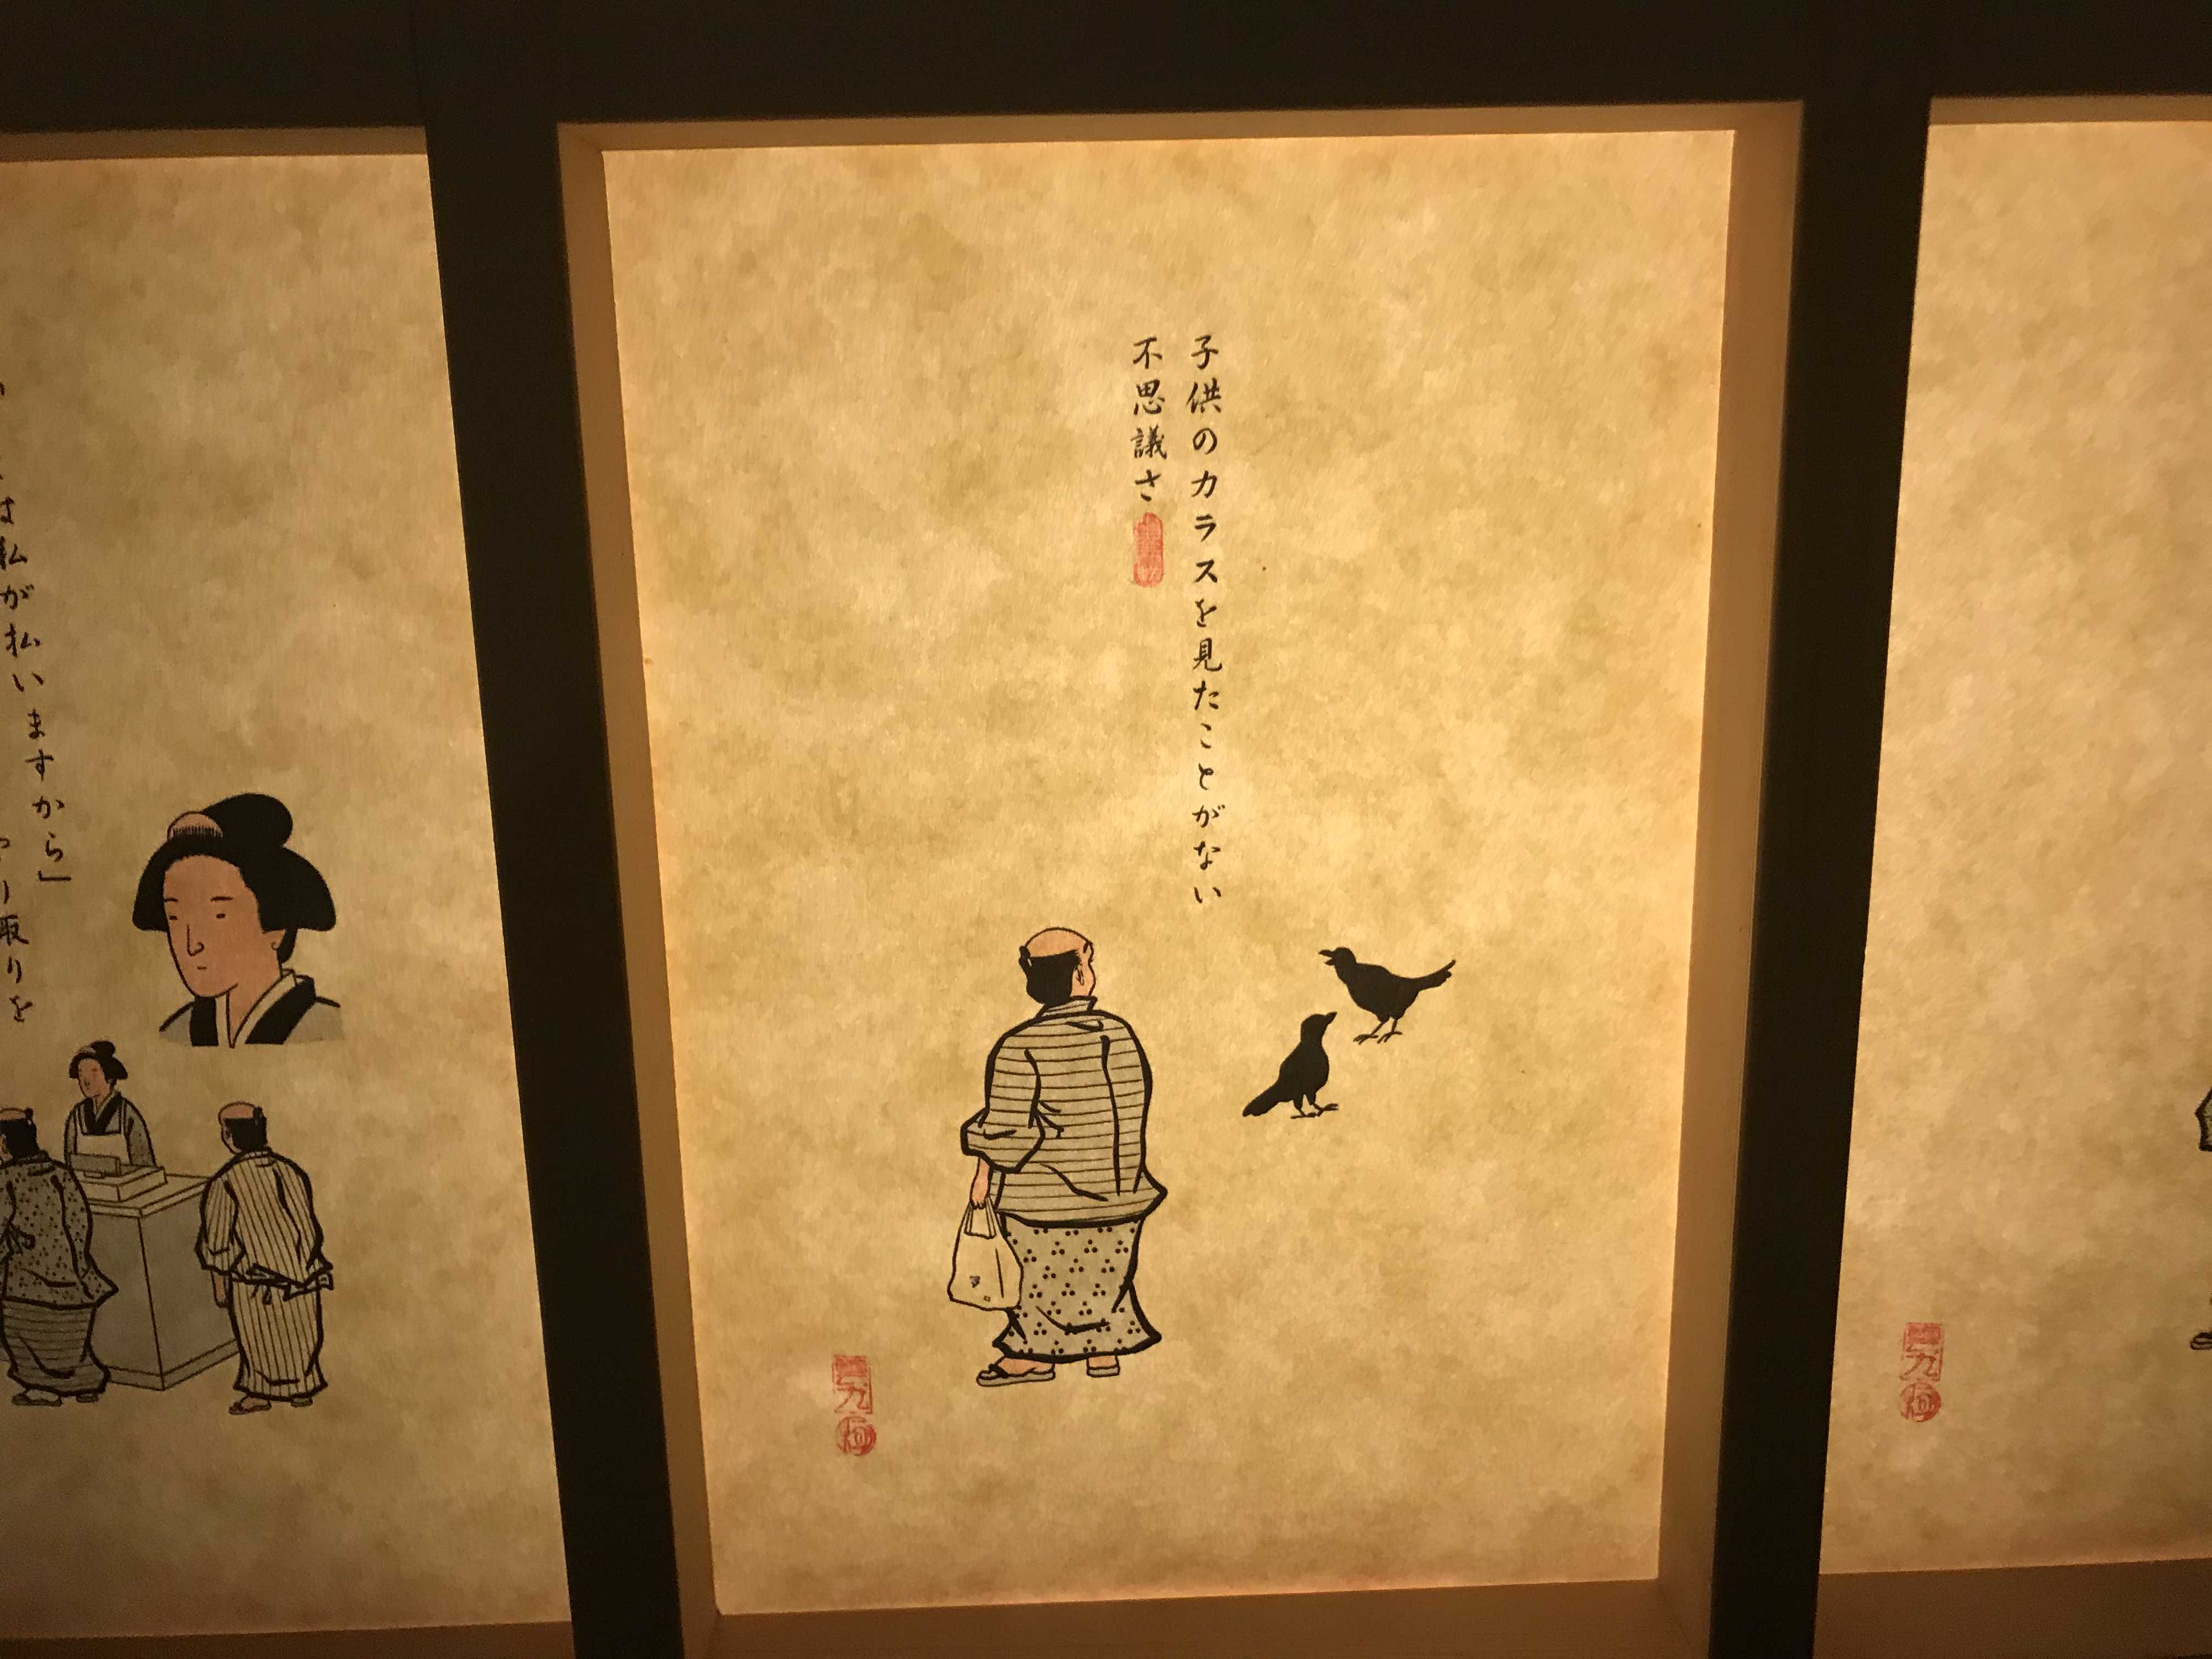 子供のカラスを見たことがない
不思議さ
は私が払いますから」
り取りを